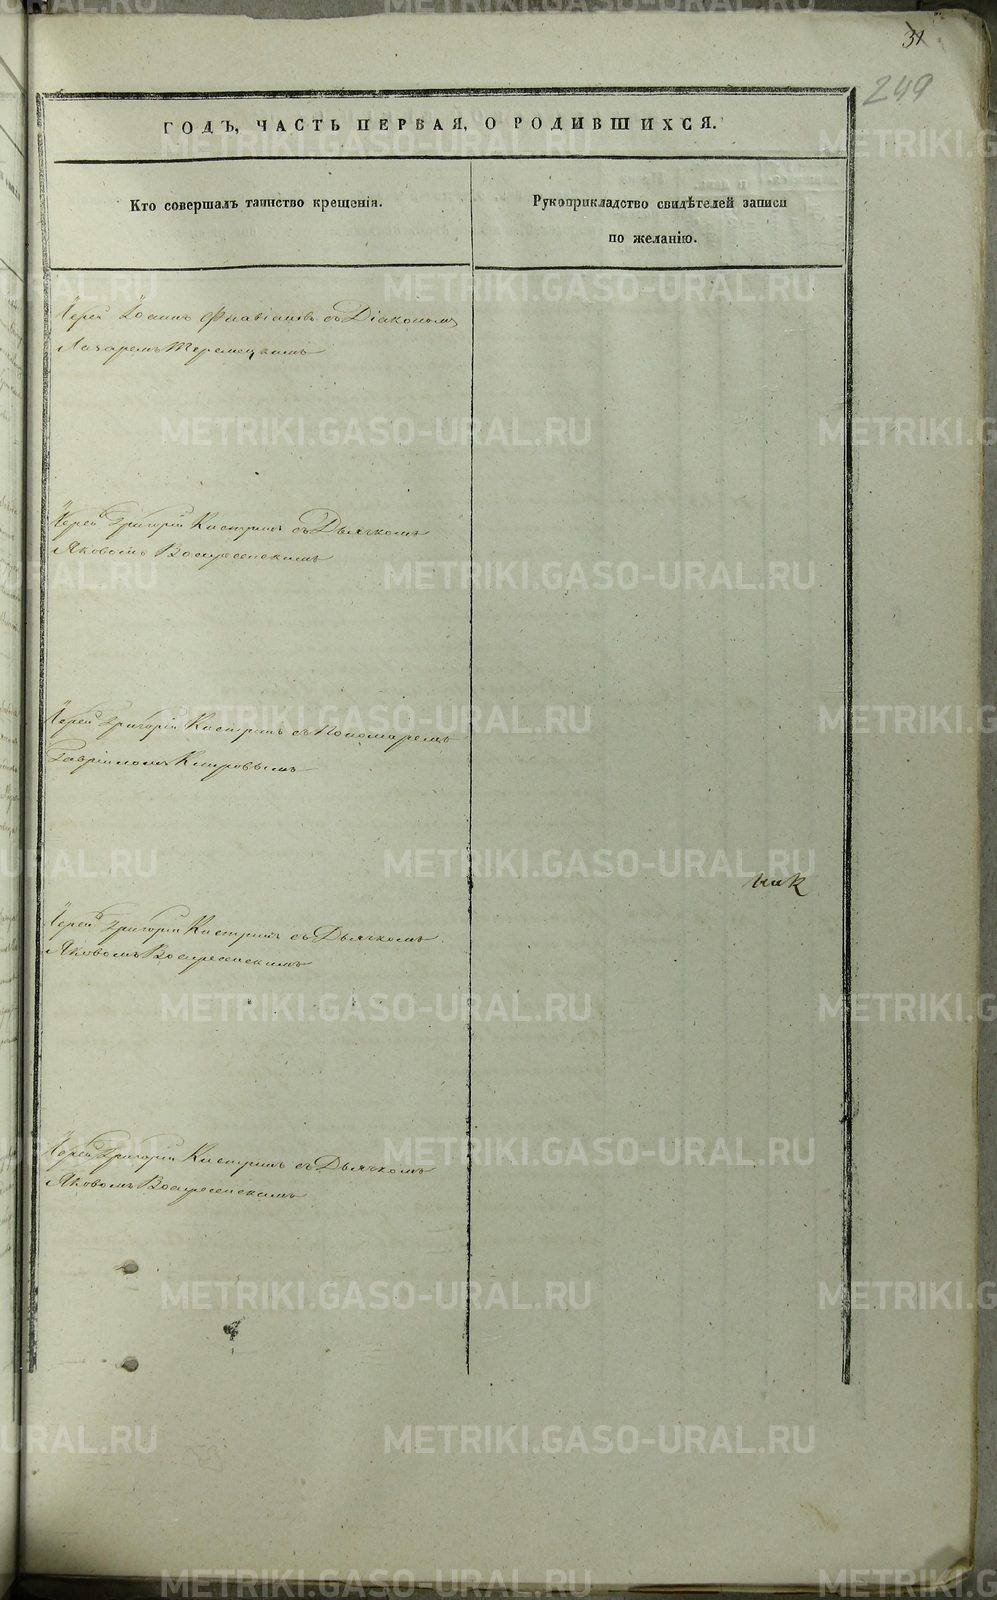 31
249
ГОДЪ, ЧАСТЬ ПЕРВАЯ, О РОДИВШИХСЯ.
Кто совершалъ таинство крещенія.
Рукоприкладство свидѣтелей записи
по желанію.
Іерей Іоаннъ Флавіановъ съ Діакономъ
Лазаремъ
Іерей Григорій Кастринъ съ Дьячкомъ
Яковомъ Воскресенскимъ
Іерей Григорій Кастринъ съ Пономаремъ
Гавріиломъ Кипровымъ
ник
Іерей Григорій Кастринъ съ Дьячкомъ
Яковомъ Воскресенскимъ
Іерей Григорій Кастринъ съ Дьячкомъ
Яковомъ Воскресенскимъ
METRIKI.GASO-URAL.RU